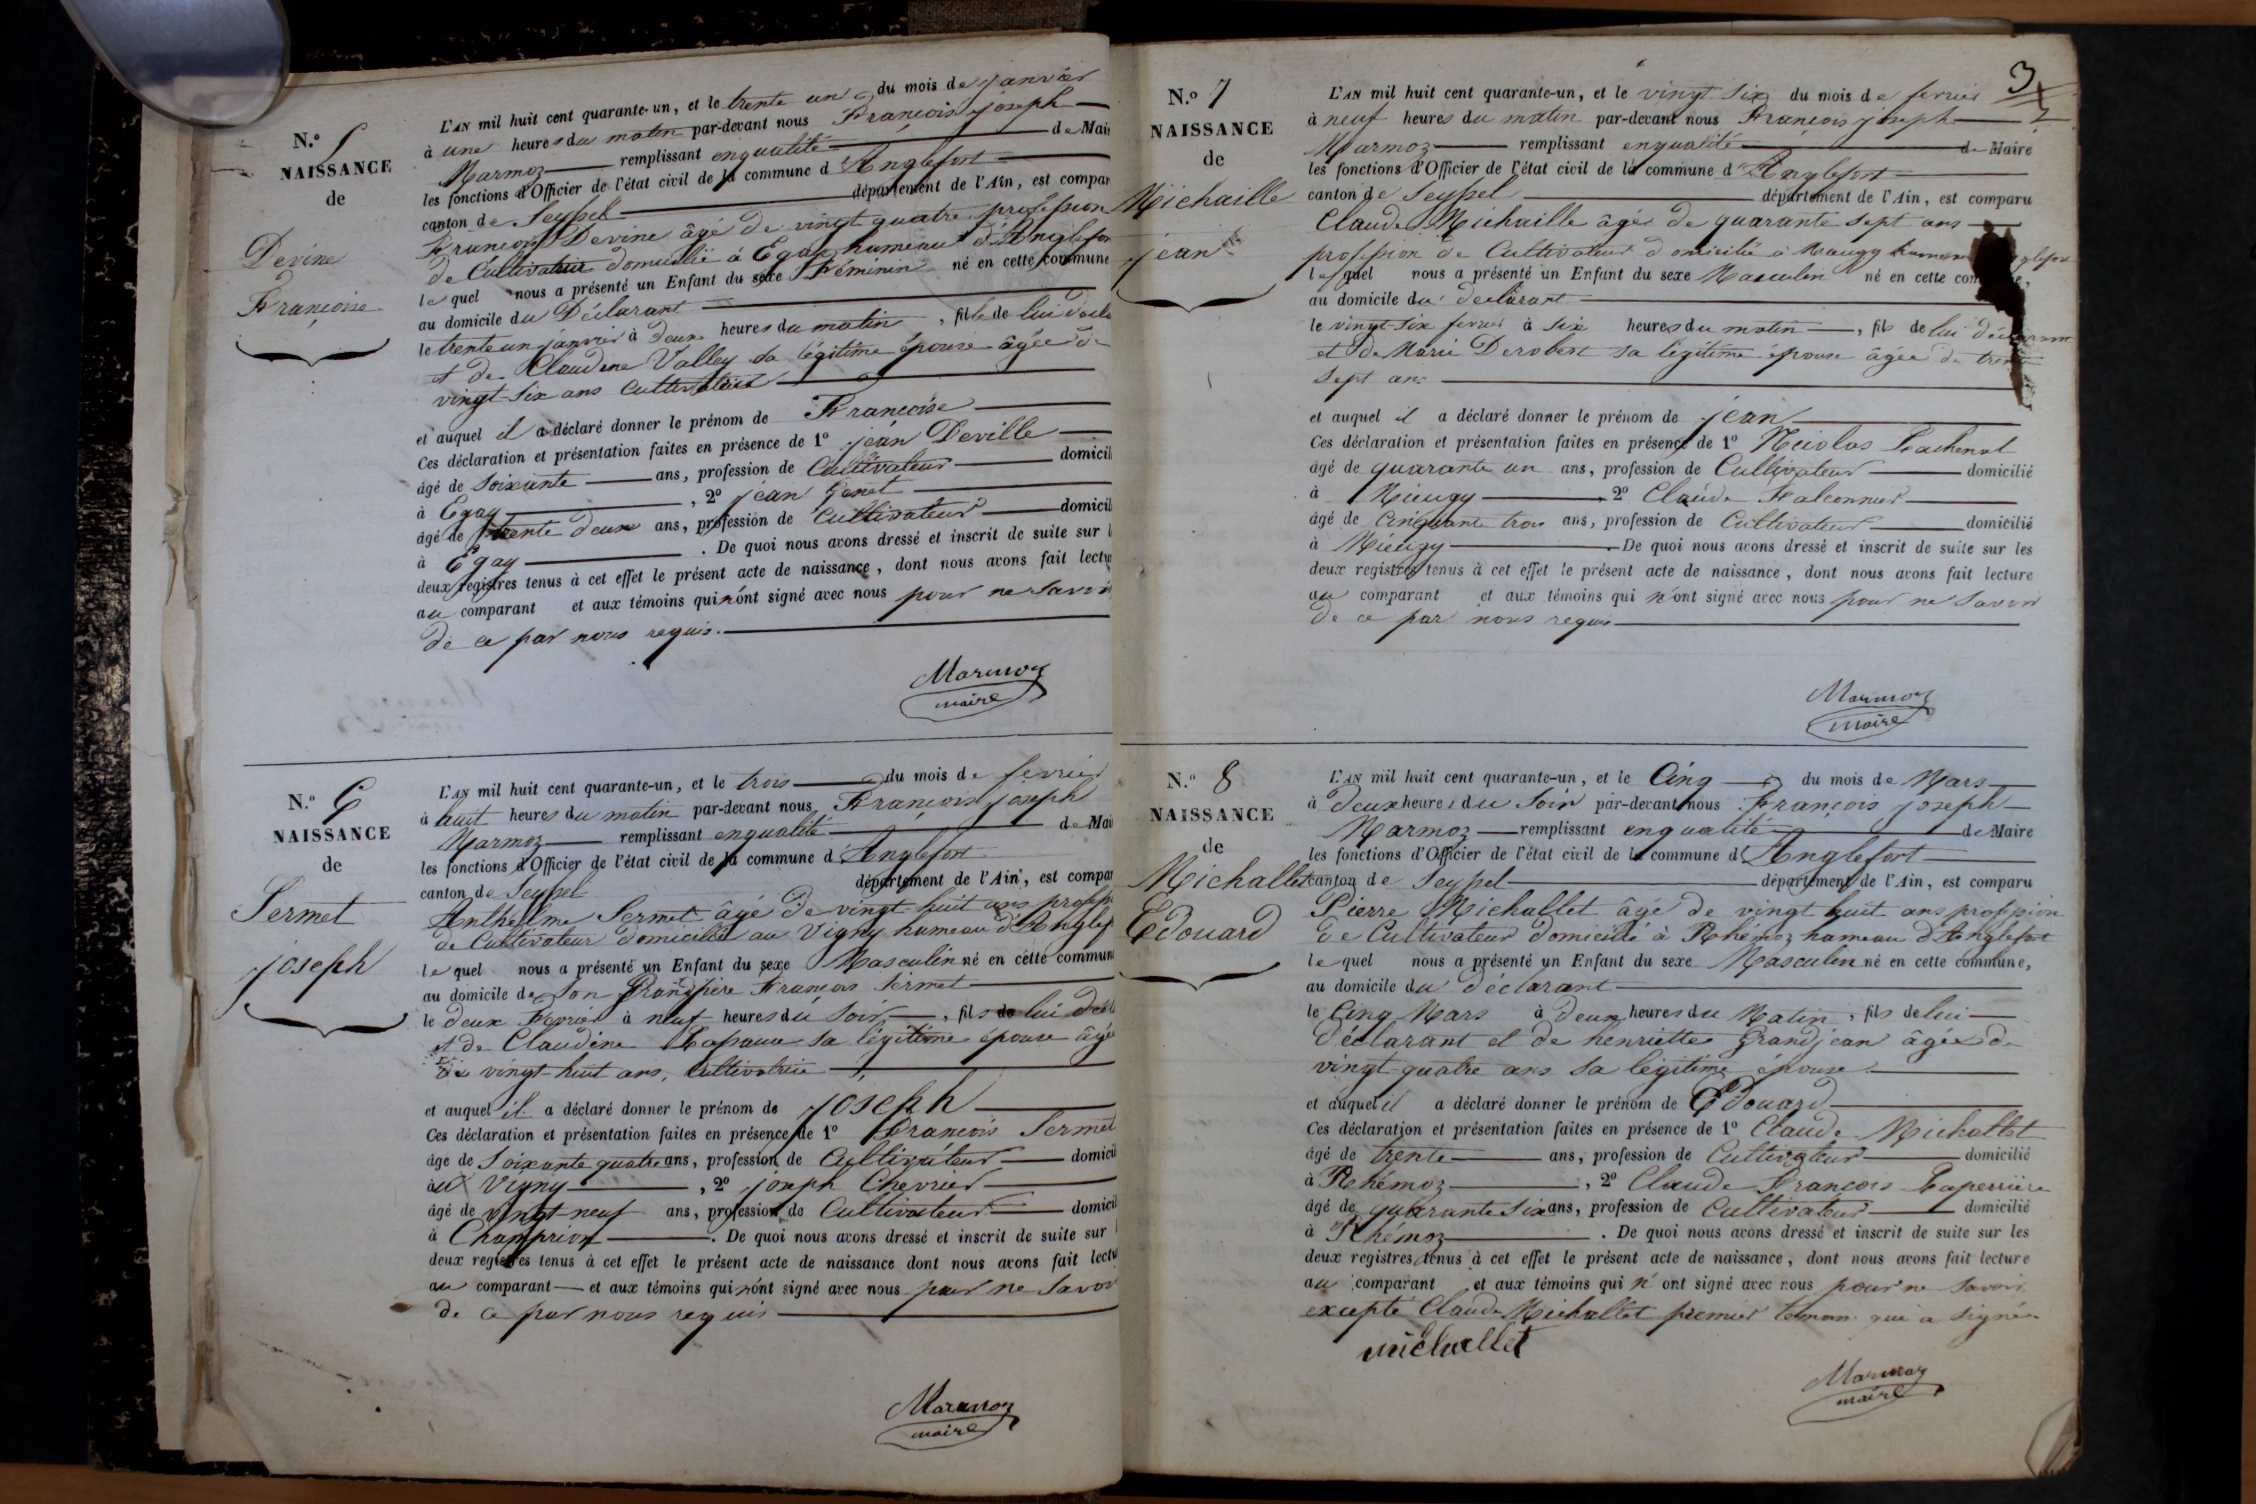 N.o 5
NAISSANCE
de
Devine
Françoise
L'AN mil huit cent quarante-un, et le trente un du mois de janvier
à une heures du matin par-devant nous François joseph
Marmoz remplissant enqualité de Mai
les fonctions d'Officier de l'état civil de la commune d'Anglefort
canton de Seyssel département de l'Ain, est compar
François Devine âgé de vingt quatre profession
de Cultivateur domicilié à Egay hameau d'Anglefor
lequel nous a présenté un Enfant du sexe Féminin né en cette commune
au domicile du Déclarant
le trente un janvier à deux heures du matin, fille de lui
et de Claudine Valley sa légitime épouse âgée de
vingt-six ans Cultivatrice
et auquel il a déclaré donner le prénom de Françoise
Ces déclaration et présentation faites en présence de 1o jean Deville
âgé de soixante ans, profession de Cultivateur domicil
à Egay, 2o jean Genet
âgé de trente deux ans, profession de Cultivateur domicil
à Egay. De quoi nous avons dressé et inscrit de suite sur l
deux registres tenus à cet effet le présent acte de naissance, dont nous avons fait lectu
au comparant et aux témoins qui n'ont signé avec nous pour ne savoir
de ce par nous requis.
Marmoz
maire
N.o 6
NAISSANCE
de
Sermet
joseph
L'AN mil huit cent quarante-un, et le trois du mois de fevrier
à huit heures du matin par-devant nous François joseph
Marmoz remplissant enqualité de Mai
les fonctions d'Officier de l'état civil de la commune d'Anglefort
canton de Seyssel département de l'Ain, est compar
Anthelme Sermet âgé de vingt-huit ans profess
de Cultivateur domicilié au Vigny hameau d'Anglef
lequel nous a présenté un Enfant du sexe Masculin né en cette commun
au domicile de son Grandpère François Sermet
le deux Fevrier à neuf heures du soir, fils de lui
et de Claudine sa légitime épouse âgée
de vingt-huit ans, cultivatrice
et auquel il a déclaré donner le prénom de joseph
Ces déclaration et présentation faites en présence de 1o François Sermet
âge de soixante quatre ans, profession de Cultivateur domicil
au Vigny, 2o joseph Chevrier
âgé de vingt-neuf ans, profession de Cultivateur domicil
à Champrion. De quoi nous avons dressé et inscrit de suite sur l
deux registres tenus à cet effet le présent acte de naissance dont nous avons fait lectu
au comparant et aux témoins qui n'ont signé avec nous pour ne savoir
de ce par nous requis
Marmoz
maire
3
N.o 7
NAISSANCE
de
Michaille
jean
L'AN mil huit cent quarante-un, et le vingt six du mois de fevrier
à neuf heures du matin par-devant nous François joseph
Marmoz remplissant enqualité de Maire
les fonctions d'Officier de l'état civil de la commune d'Anglefort
canton de Seyssel département de l'Ain, est comparu
Claude Michaille âgé de quarante sept ans
profession de Cultivateur domicilié à hameau
lequel nous a présenté un Enfant du sexe Masculin né en cette com
au domicile du déclarant
le vingt-six fevrier à six heures du matin, fils de lui déclarant
et de Marie Derobert sa légitime épouse âgée de trente
sept ans
et auquel il a déclaré donner le prénom de jean
Ces déclaration et présentation faites en présence de 1o Nicolas
âgé de quarante un ans, profession de Cultivateur domicilié
à Mieugy 2o Claude Falconnier
âgé de Cinquante trois ans, profession de Cultivateur domicilié
à Mieugy De quoi nous avons dressé et inscrit de suite sur les
deux registres tenus à cet effet le présent acte de naissance, dont nous avons fait lecture
au comparant et aux témoins qui n'ont signé avec nous pour ne savoir
de ce par nous requis
Marmoz
maire
N.o 8
NAISSANCE
de
Michallet
Edouard
L'AN mil huit cent quarante-un, et le Cinq du mois de Mars
à deux heures du soir par-devant nous François joseph
Marmoz remplissant enqualité de Maire
les fonctions d'Officier de l'état civil de la commune d'Anglefort
canton de Seyssel département de l'Ain, est comparu
Pierre Michallet âgé de vingt huit ans profession
de Cultivateur domicilié à Rhémoz hameau d'Anglefort
lequel nous a présenté un Enfant du sexe Masculin né en cette commune,
au domicile du déclarant
le Cinq Mars à deux heures du Matin, fils de lui
déclarant et de henriette Grandjean âgée de
vingt quatre ans sa légitime épouse
et auquel il a déclaré donner le prénom de Edouard
Ces déclaration et présentation faites en présence de 1o Claude Michallet
âgé de trente ans, profession de Cultivateur domicilié
à Rhémoz, 2o Claude François Laperrière
âgé de quarante six ans, profession de Cultivateur domicilié
à Rhémoz. De quoi nous avons dressé et inscrit de suite sur les
deux registres tenus à cet effet le présent acte de naissance, dont nous avons fait lecture
au comparant et aux témoins qui n'ont signé avec nous pour ne savoir
excepté Claude Michallet premier temoin qui a signé
michallet
Marmoz
maire